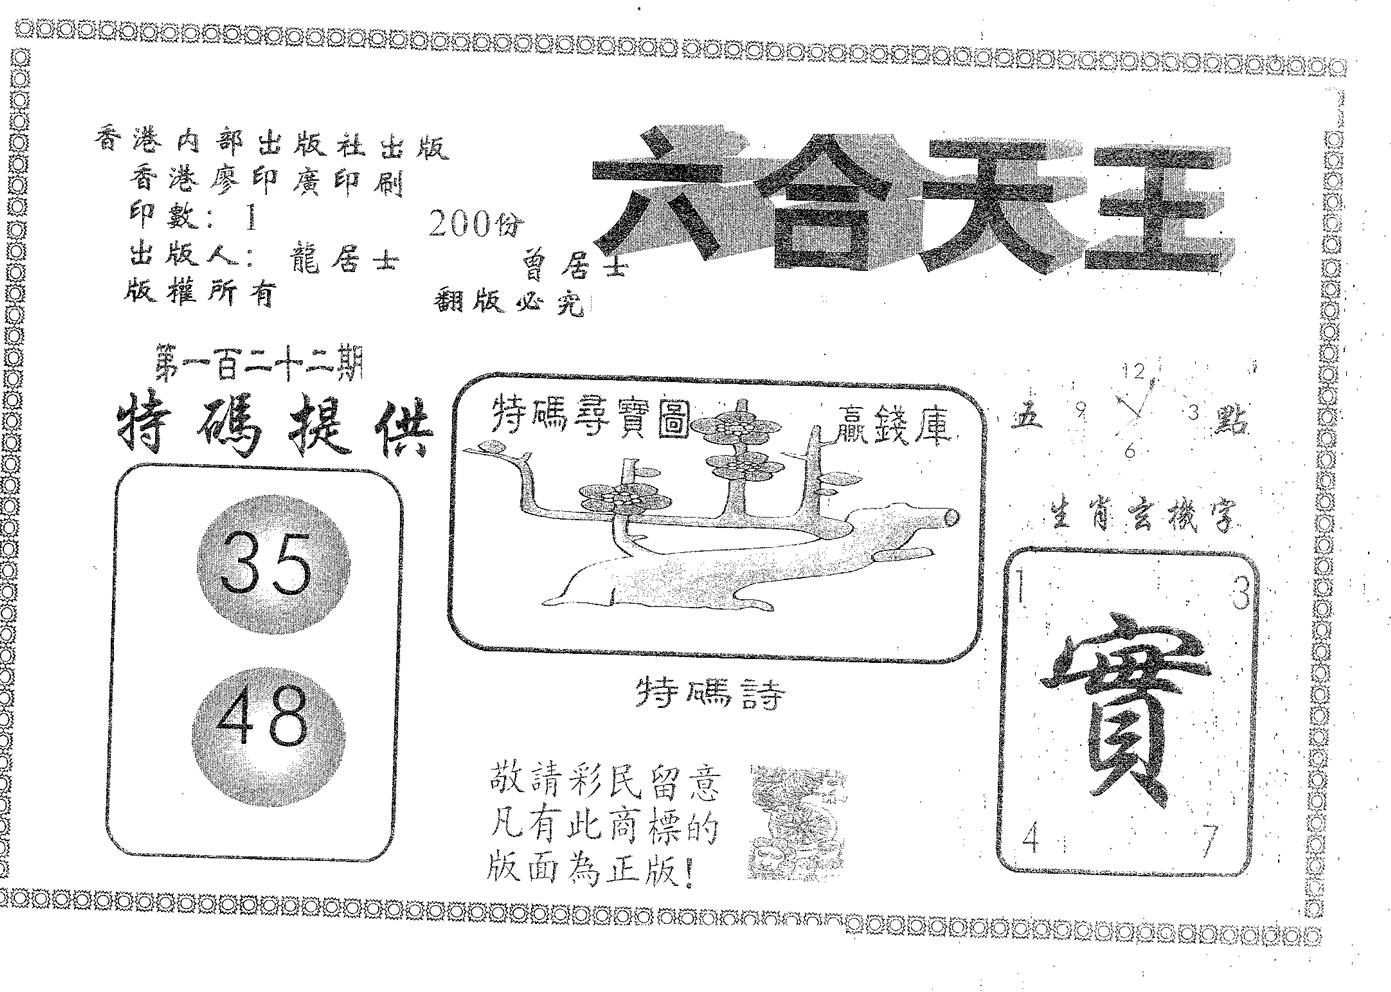 香港内部出版社出版
香港廖印廣印刷
印數: 1 200份
出版人: 龍居士 曾居士
版權所有 翻版必究
六合天王
第一百二十二期
特碼提供
35
48
特碼尋寶圖 贏錢庫
特碼詩
敬請彩民留意
凡有此商標的
版面為正版!
五 點
12
9 3
6
生肖玄機字
1 3
實
4 7